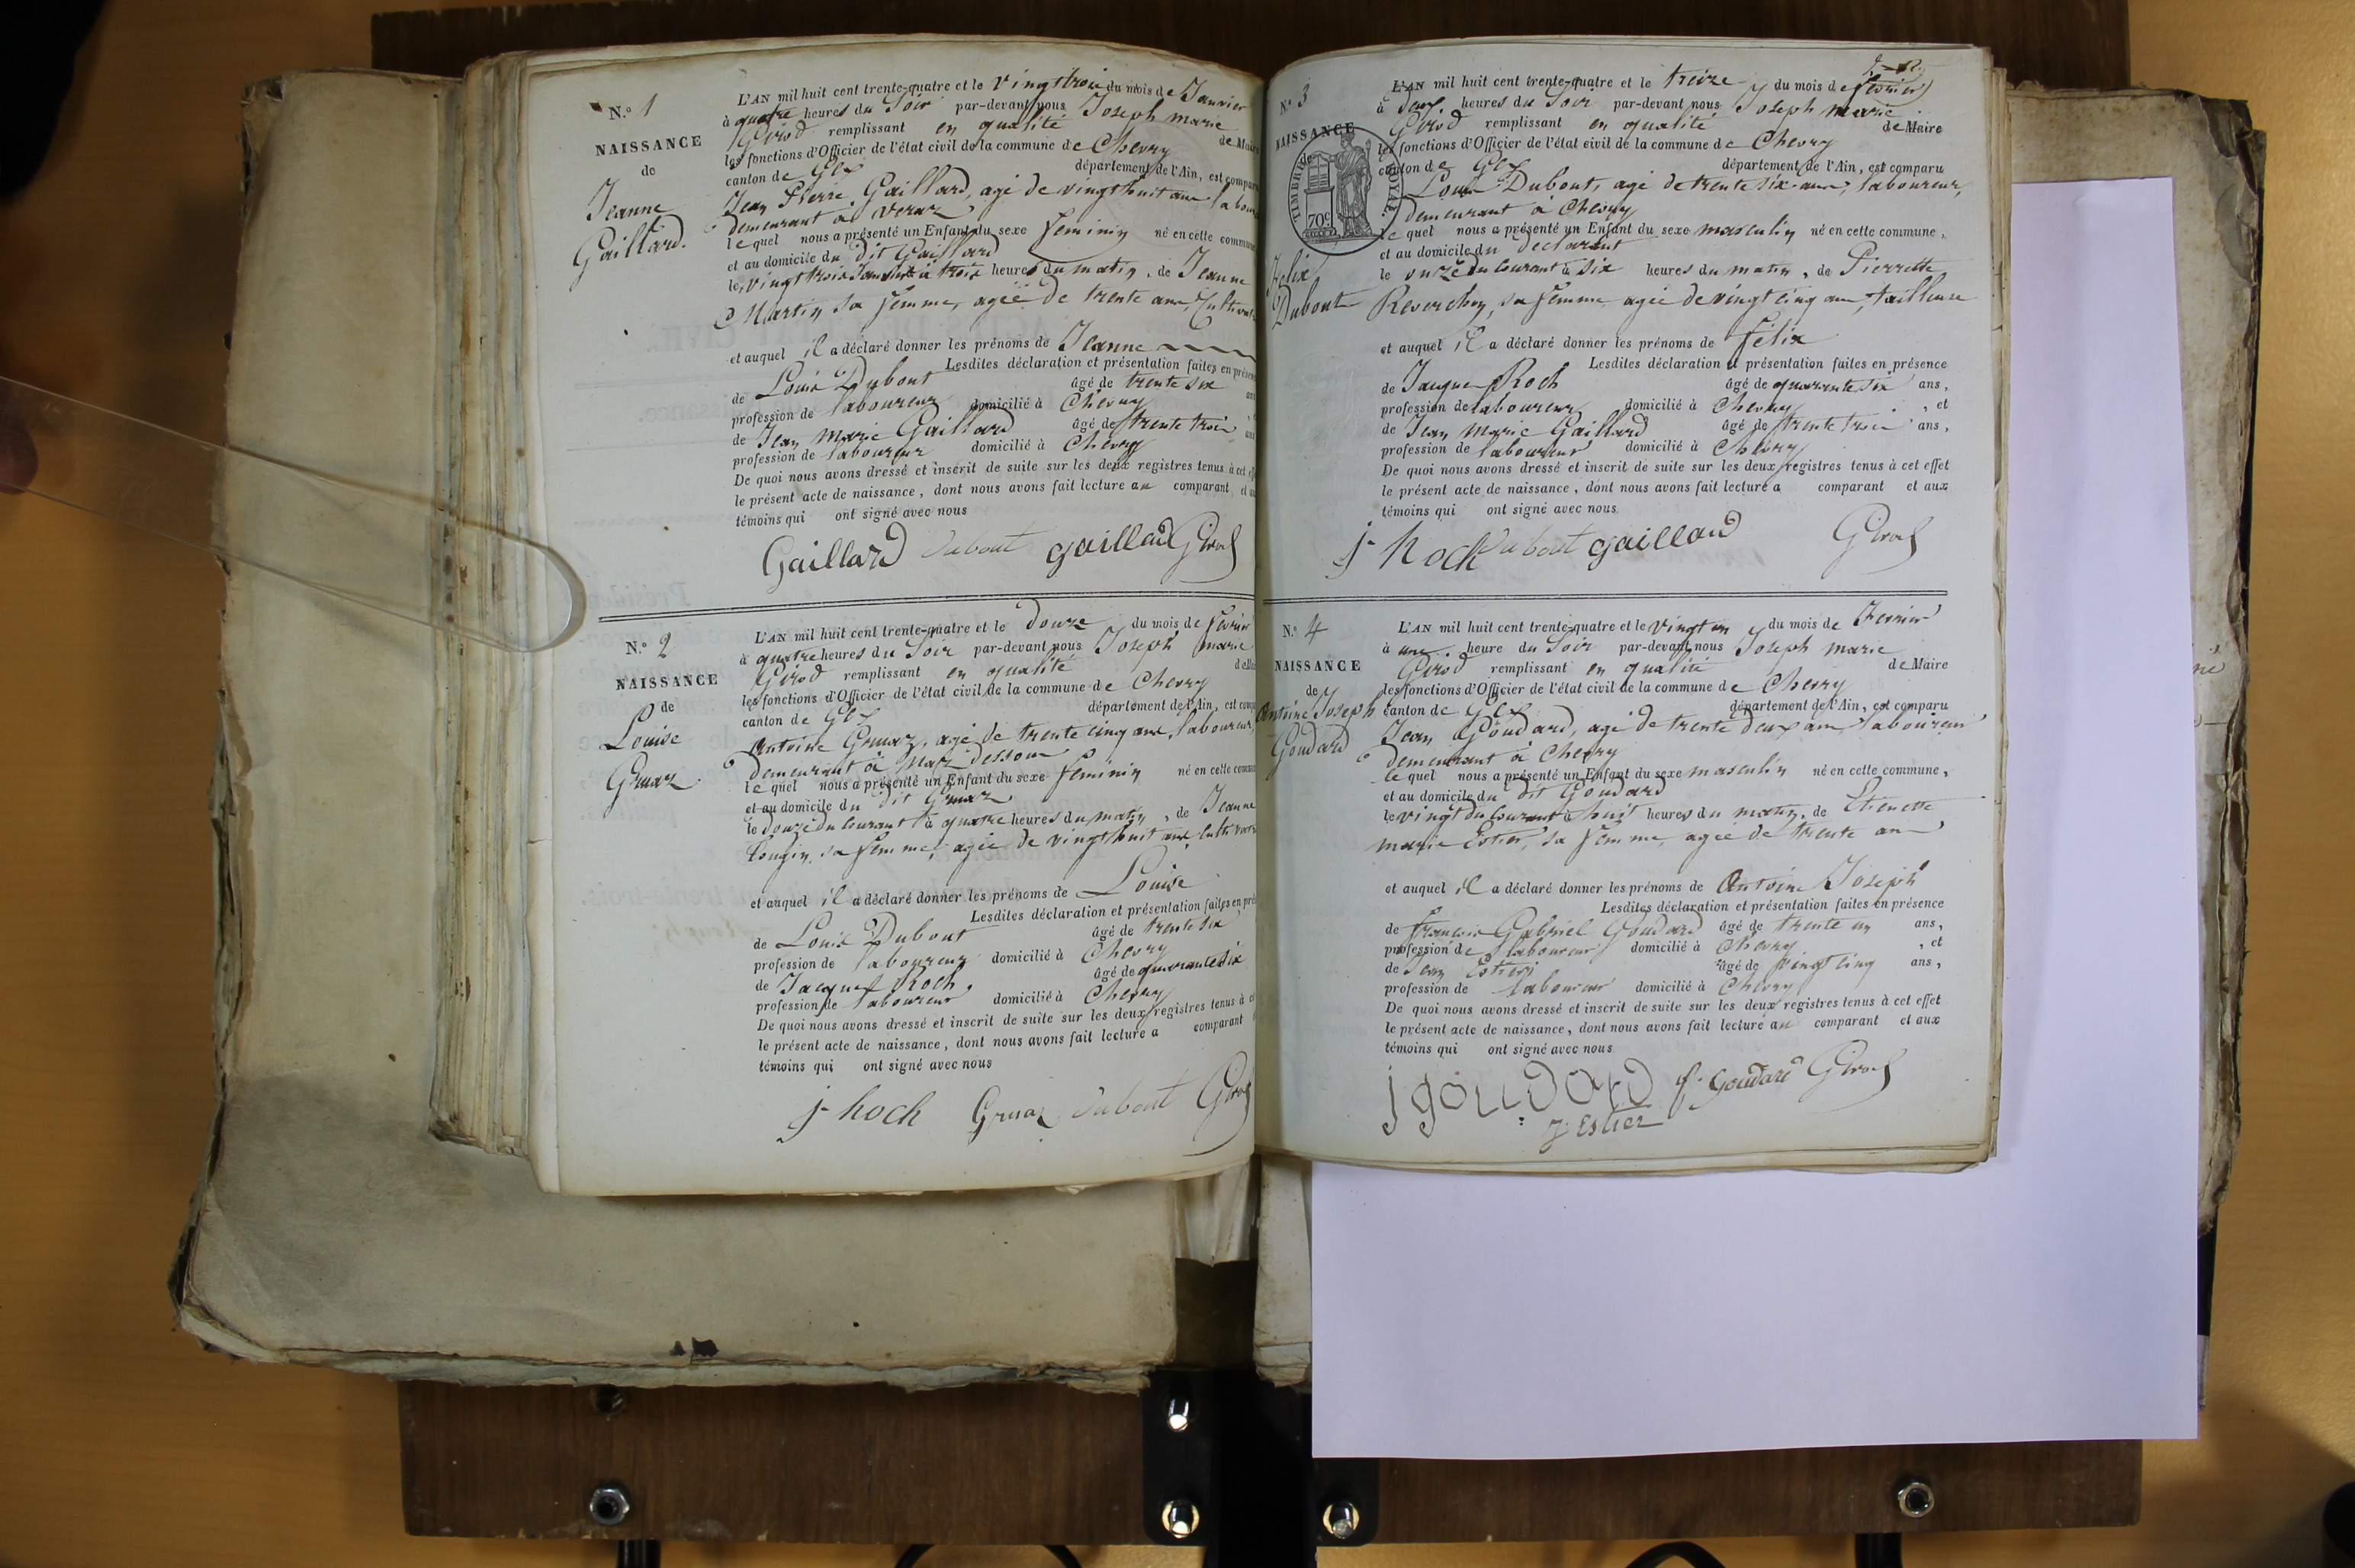 N.º 1
NAISSANCE
de
Jeanne
Gaillard.
L'AN mil huit cent trente-quatre et le vingt trois du mois de Janvier
à quatre heures du Soir par-devant nous Joseph marie
Girod remplissant en qualité de Maire
les fonctions d'Officier de l'état civil de la commune de Chevry
canton de Gex département de l'Ain, est comparu
Jean Pierre Gaillard, agé de vingt huit ans labou
demeurant à Veraz
lequel nous a présenté un Enfant du sexe féminin né en cette commune
et au domicile du dit Gaillard
le vingt trois Janvier à trois heures du matin, de Jeanne
Martin sa femme, agée de trente ans, Cultivat
et auquel il a déclaré donner les prénoms de Jeanne
Lesdites déclaration et présentation faites en présence
de Louis Dubout âgé de trente six ans
profession de laboureur domicilié à Chevry, et
de Jean Marie Gaillard âgé de trente trois ans
profession de laboureur domicilié à Chevry
De quoi nous avons dressé et inscrit de suite sur les deux registres tenus à cet eff
le présent acte de naissance, dont nous avons fait lecture au comparant et au
témoins qui ont signé avec nous
Gaillard Dubout gaillard Girod
N.º 2
NAISSANCE
de
Louise
Gruaz.
L'AN mil huit cent trente-quatre et le douze du mois de février
à quatre heures du Soir par-devant nous Joseph marie
Girod remplissant en qualité de Mai
les fonctions d'Officier de l'état civil de la commune de Chevry
canton de Gex département de l'Ain, est comp
Antoine Gruaz, agé de trente cinq ans, laboureur,
demeurant à Naz Dessous
lequel nous a présenté un Enfant du sexe féminin né en cette commu
et au domicile du dit Gruaz
le douze du Courant à quatre heures du matin, de Jeanne
Longin, sa femme, agée de vingt huit ans, cultivatr
et auquel il a déclaré donner les prénoms de Louise
Lesdites déclaration et présentation faites en pré
de Louis Dubout âgé de trente six
profession de laboureur domicilié à Chevry
de Jacques Roch, âgé de quarante six
profession de laboureur domicilié à Chevry
De quoi nous avons dressé et inscrit de suite sur les deux registres tenus à c
le présent acte de naissance, dont nous avons fait lecture a comparant
témoins qui ont signé avec nous
j- hoch Gruaz Dubout Girod
N.º 3
NAISSANCE
de
TIMBRE ROYAL.
70c
Félix
Dubout
L'AN mil huit cent trente-quatre et le treize du mois de février
à deux heures du Soir par-devant nous Joseph marie
Girod remplissant en qualité de Maire
les fonctions d'Officier de l'état civil de la commune de Chevry
canton de Gex département de l'Ain, est comparu
Louis Dubout, agé de trente six ans, laboureur,
demeurant à Chevry
lequel nous a présenté un Enfant du sexe masculin né en cette commune,
et au domicile du déclarant
le onze du Courant à six heures du matin, de Pierrette
Reverchon, sa femme agée de vingt cinq ans, tailleuse
et auquel il a déclaré donner les prénoms de félix
Lesdites déclaration et présentation faites en présence
de Jacques Roch âgé de quarante six ans,
profession de laboureur domicilié à Chevry, et
de Jean Marie Gaillard âgé de trente trois ans,
profession de laboureur domicilié à Chevry
De quoi nous avons dressé et inscrit de suite sur les deux registres tenus à cet effet
le présent acte de naissance, dont nous avons fait lecture a comparant et aux
témoins qui ont signé avec nous
j- hoch Dubout gaillard Girod
N.º 4
NAISSANCE
de
Antoine Joseph
Goudard
L'AN mil huit cent trente-quatre et le vingt un du mois de Février
à une heure du Soir par-devant nous Joseph marie
Girod remplissant en qualité de Maire
les fonctions d'Officier de l'état civil de la commune de Chevry
canton de Gex département de l'Ain, est comparu
Jean Goudard, agé de trente deux ans laboureur
demeurant à Chevry
lequel nous a présenté un Enfant du sexe masculin né en cette commune,
et au domicile du dit Goudard
le vingt du Courant à huit heures du matin, de Etienette
marie Estier, sa femme, agée de trente ans
et auquel il a déclaré donner les prénoms de Antoine Joseph
Lesdites déclaration et présentation faites en présence
de françois Gabriel Goudard âgé de trente un ans,
profession de laboureur domicilié à Chevry, et
de Jean Estier âgé de vingt cinq ans,
profession de laboureur domicilié à Chevry
De quoi nous avons dressé et inscrit de suite sur les deux registres tenus à cet effet
le présent acte de naissance, dont nous avons fait lecture au comparant et aux
témoins qui ont signé avec nous
j goudard f. goudard Girod
j. Estier